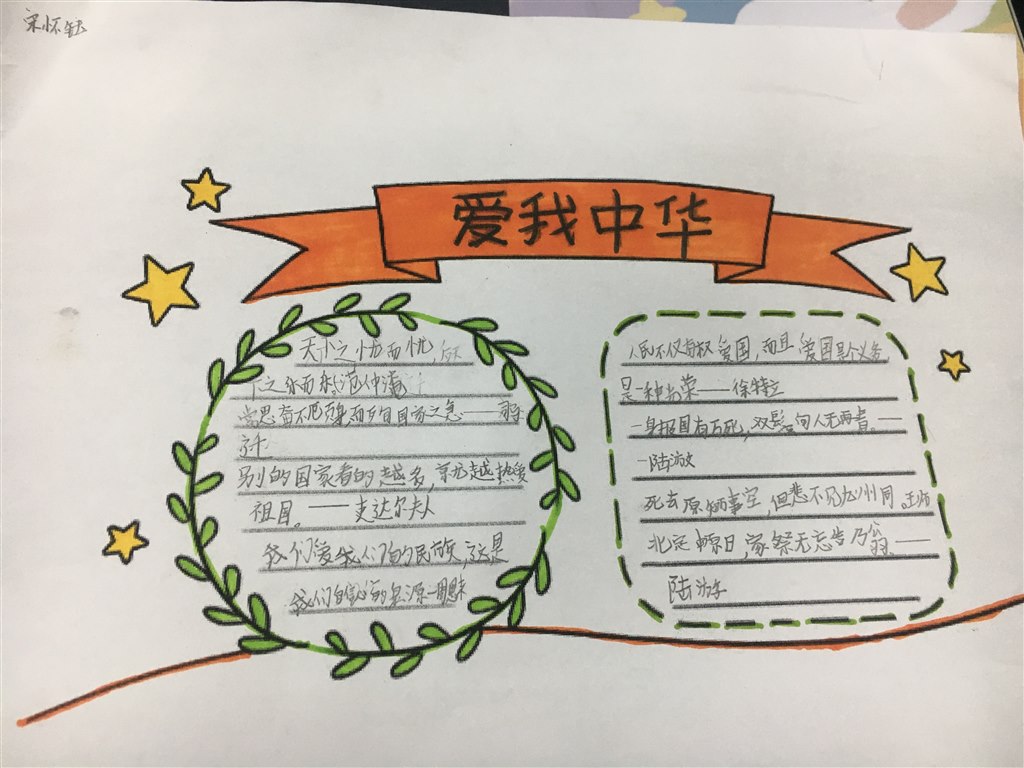 宋怀钰
爱我中华
天下之忧而忧 后天
下之乐而乐范仲淹
常思奋不顾身而
别的国家看的越多,就越热爱
祖国。——史达尔夫人
我们爱我们的民族,这是
我们自信心的泉源—周恩来
人民不仅有权爱国,而且爱国是个义务
是一种光荣——徐特立
一身报国有万死,双影向人无再青。—
—陆游
死去原知万事空,但悲不见九州同。王师
北定中原日 家祭无忘告乃翁。——
陆游